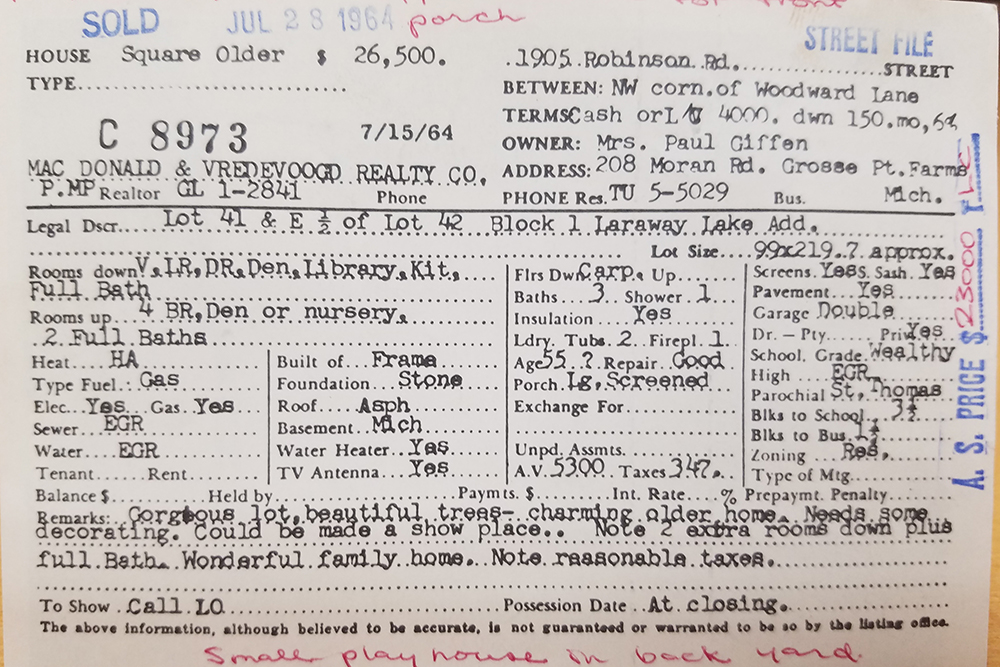 SOLD JUL 28 1964 porch
STREET FILE
HOUSE Square Older $ 26,500.
TYPE
C 8973 7/15/64
MAC DONALD & VREDEVOOGD REALTY CO.
P.MP Realtor GL 1-2841 Phone
1905 Robinson Rd. STREET
BETWEEN: NW corn.of Woodward Lane
TERMS Cash or L/C 4000. dwn 150.mo,6%
OWNER: Mrs. Paul Giffen
ADDRESS: 208 Moran Rd. Grosse Pt.Farms
PHONE Res. TU 5-5029 Bus. Mich.
Legal Dscr. Lot 41 & E ½ of Lot 42 Block 1 Laraway Lake Add.
Lot Size 99x219.7 approx.
Rooms down V.LR,DR,Den,Library,Kit,
Full Bath
Rooms up 4 BR,Den or nursery,
2 Full Baths
Heat HA
Type Fuel: Gas
Elec. Yes Gas Yes
Sewer EGR
Water EGR
Tenant Rent
Built of Frame
Foundation Stone
Roof Asph
Basement Mich
Water Heater Yes
TV Antenna Yes
Flrs Dwn Carp. Up
Baths 3 Shower 1
Insulation Yes
Ldry. Tubs 2 Firepl. 1
Age 55 ? Repair Good
Porch Lg, Screened
Exchange For
Unpd. Assmts.
A.V. 5300 Taxes 347.
Screens. Yes S. Sash Yes
Pavement Yes
Garage Double
Dr. – Pty. Pri. Yes
School, Grade Wealthy
High EGR
Parochial St. Thomas
Blks to School 3½
Blks to Bus. 1½
Zoning Res.
Type of Mtg.
A. S. PRICE $ 23000
Balance $ Held by Paymts. $ Int. Rate % Prepaymt. Penalty
Remarks: Gorgeous lot,beautiful trees- charming older home. Needs some
decorating. Could be made a show place.. Note 2 extra rooms down plus
full Bath. Wonderful family home. Note reasonable taxes.
To Show Call LO Possession Date At closing.
The above information, although believed to be accurate, is not guaranteed or warranted to be so by the listing office.
Small play house in back yard.